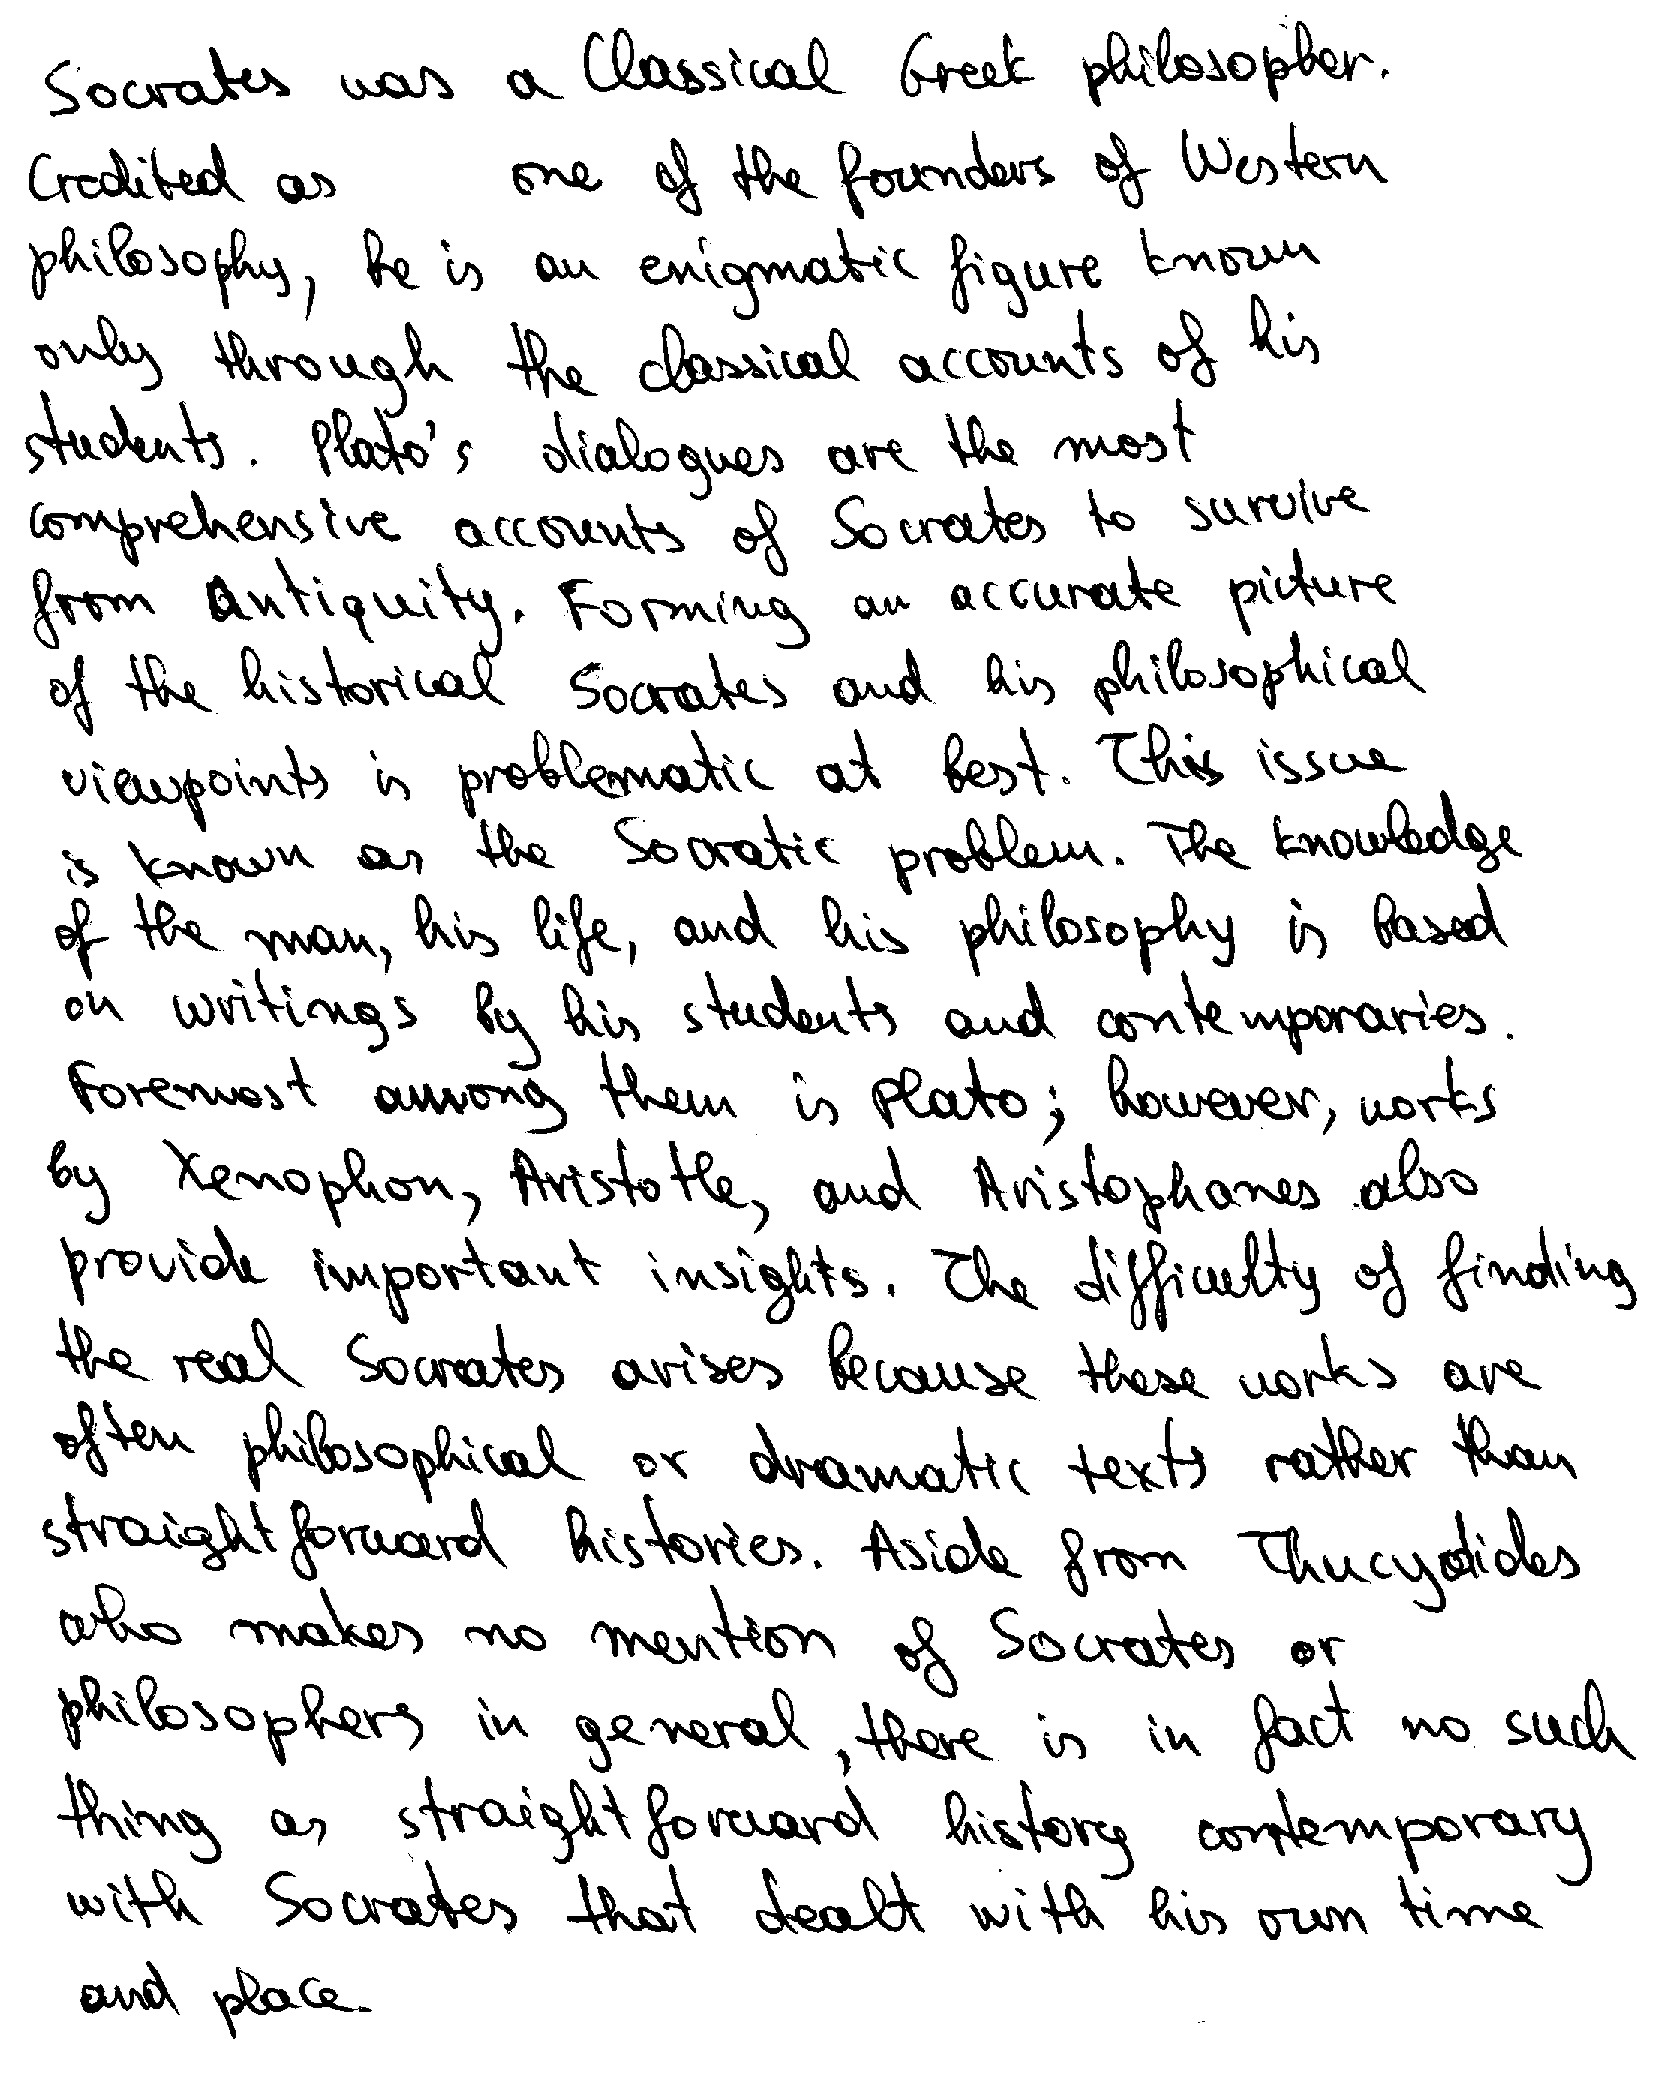 Socrates was a Classical Greek philosopher.
Credited as one of the founders of Western
philosophy, he is an enigmatic figure known
only through the classical accounts of his
students. Plato's dialogues are the most
comprehensive accounts of Socrates to survive
from Antiquity. Forming an accurate picture
of the historical Socrates and his philosophical
viewpoints is problematic at best. This issue
is known as the Socratic problem. The knowledge
of the man, his life, and his philosophy is based
on writings by his students and contemporaries.
Foremost among them is Plato; however, works
by Xenophon, Aristotle, and Aristophanes also
provide important insights. The difficulty of finding
the real Socrates arises because these works are
often philosophical or dramatic texts rather than
straightforward histories. Aside from Thucydides
who makes no mention of Socrates or
philosophers in general, there is in fact no such
thing as straightforward history contemporary
with Socrates that dealt with his own time
and place.